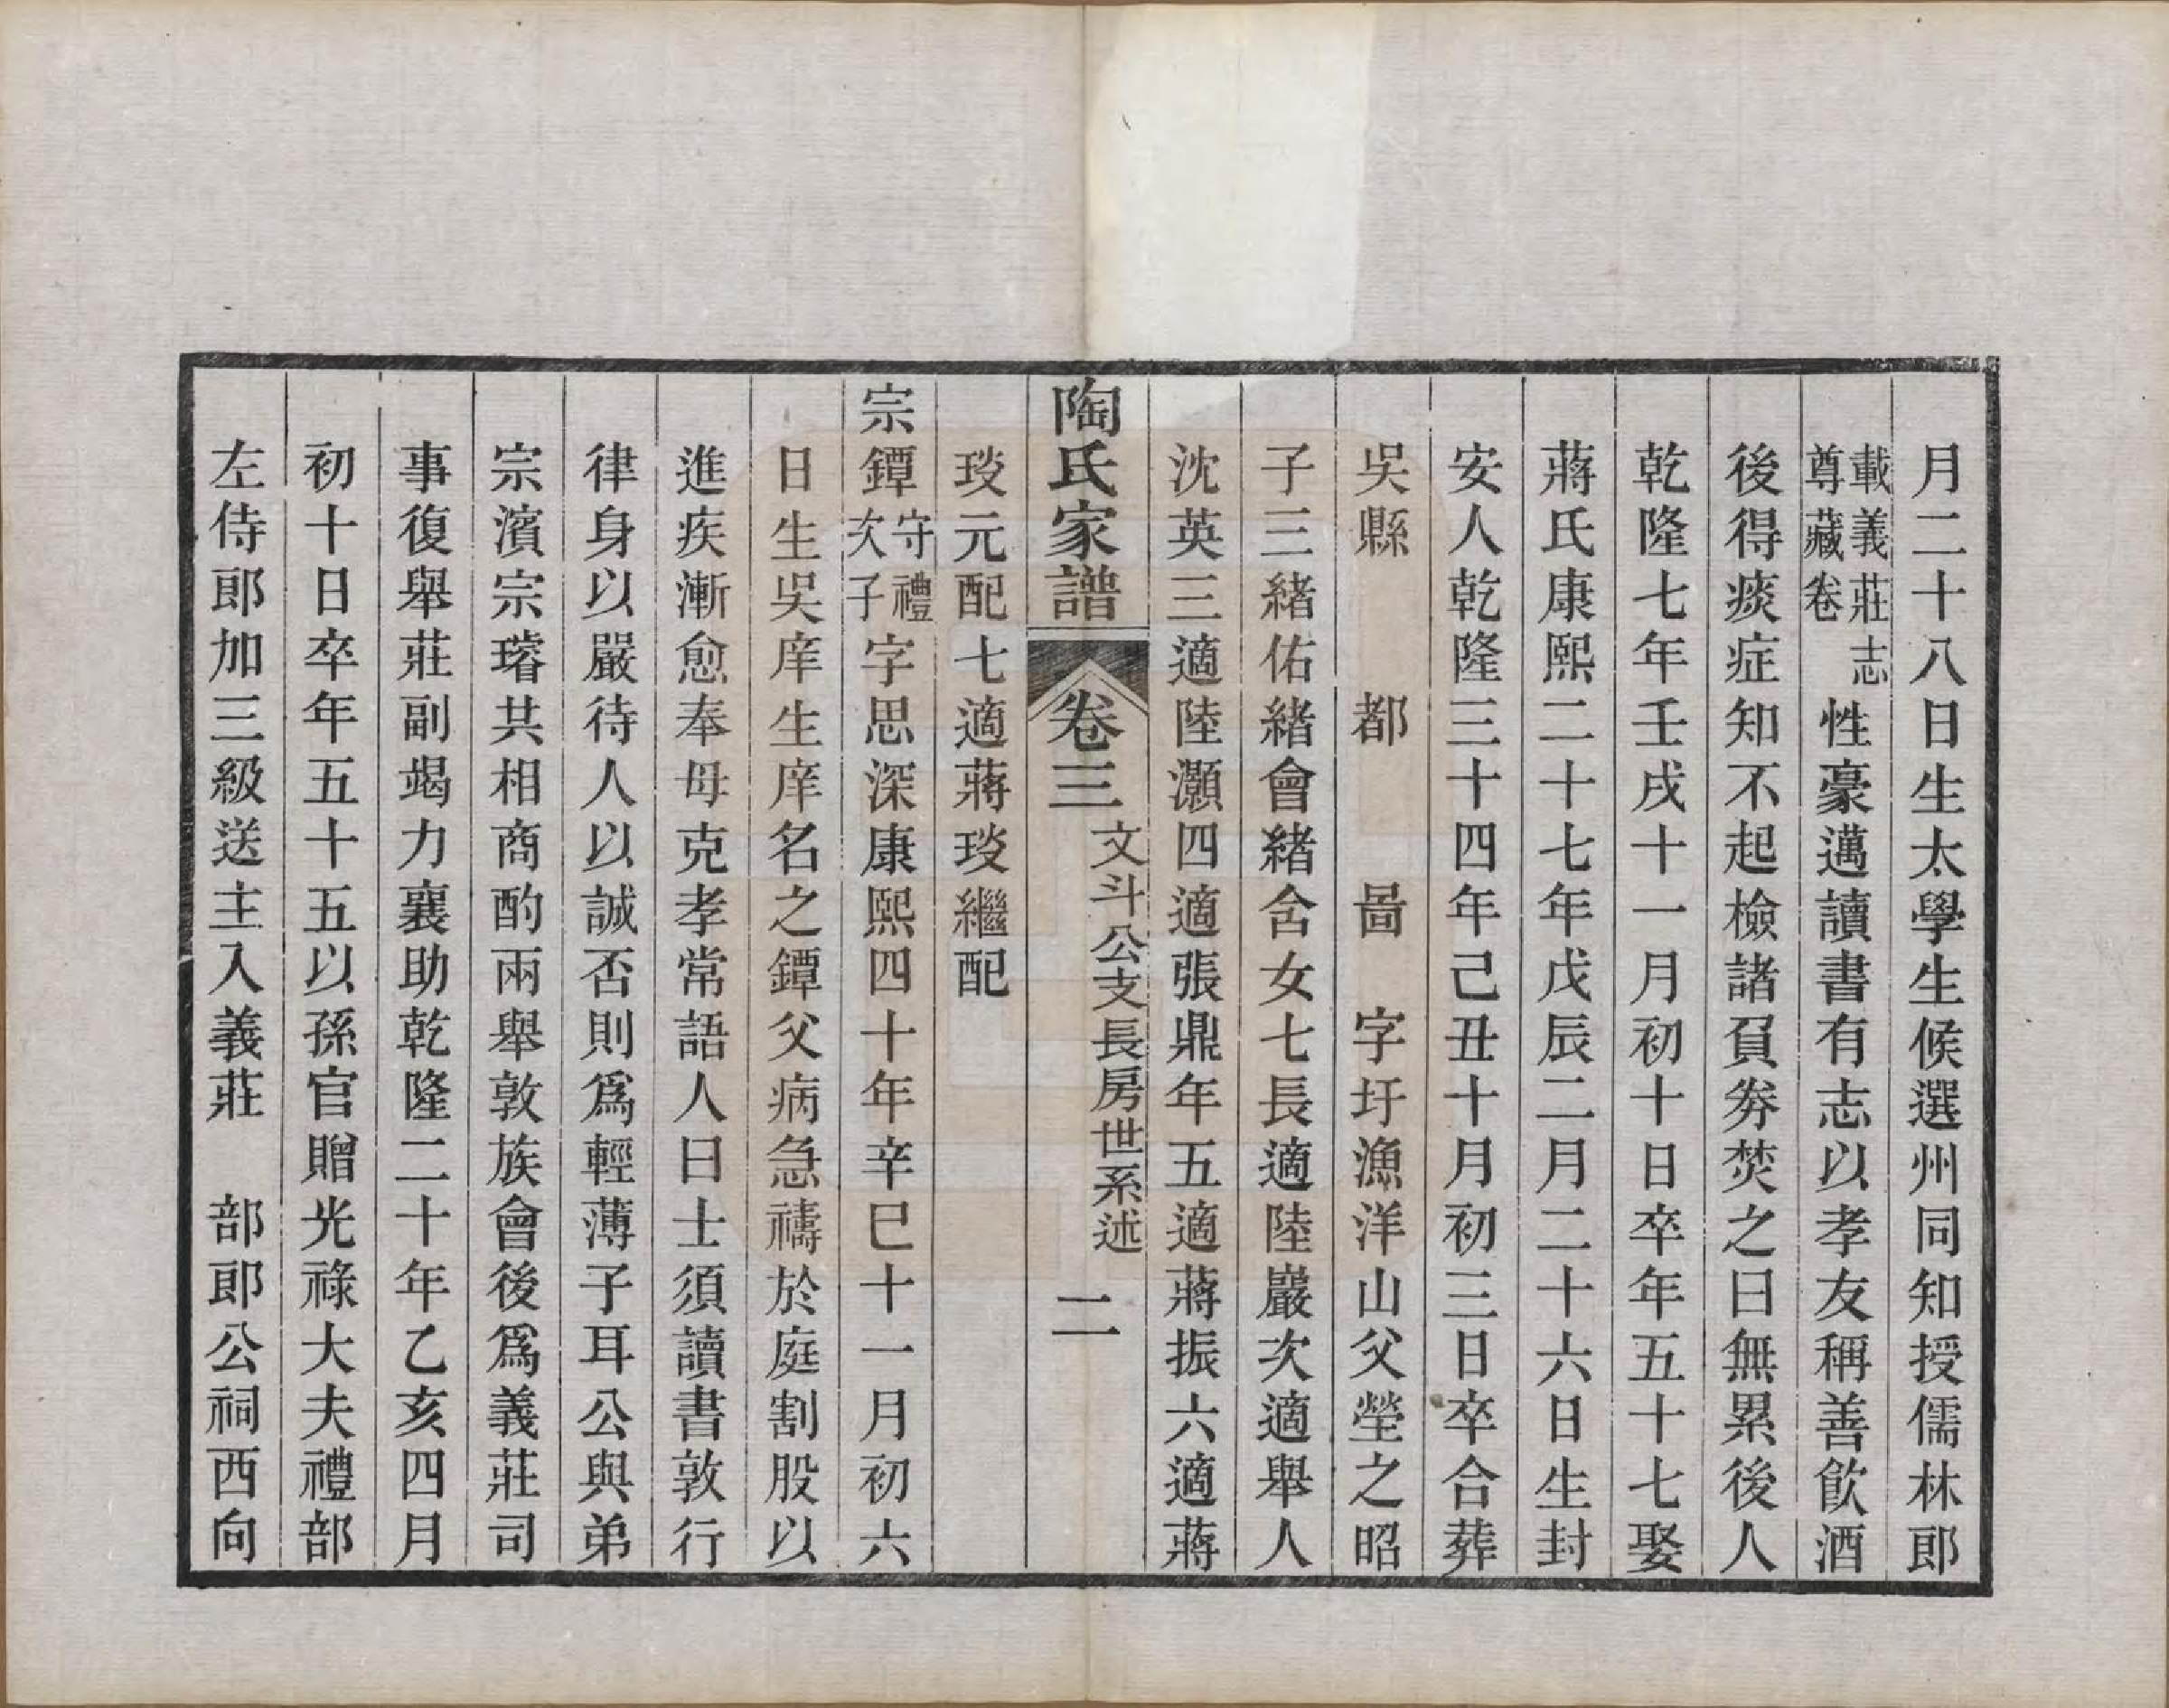 月二十八日生太學生候選州同知授儒林郎
載義莊志尊藏卷性豪邁讀書有志以孝友稱善飲酒
後得痰症知不起檢諸負券焚之曰無累後人
乾隆七年壬戌十一月初十日卒年五十七娶
蔣氏康熙二十七年戊辰二月二十六日生封
安人乾隆三十四年己丑十月初三日卒合葬
吳縣　都　啚　字圩漁洋山父塋之昭
子三緒佑緒會緒含女七長適陸巖次適舉人
沈英三適陸灝四適張鼎年五適蔣振六適蔣
琰元配七適蔣琰繼配
陶氏家譜　卷三　文斗公支長房世系述　二
宗鐔守禮次子字思深康熙四十年辛巳十一月初六
日生吳庠生庠名之鐔父病急禱於庭割股以
進疾漸愈奉母克孝常語人曰士須讀書敦行
律身以嚴待人以誠否則爲輕薄子耳公與弟
宗濱宗璿共相商酌兩舉敦族會後爲義莊司
事復舉莊副竭力襄助乾隆二十年乙亥四月
初十日卒年五十五以孫官贈光祿大夫禮部
左侍郎加三級送主入義莊　部郎公祠西向